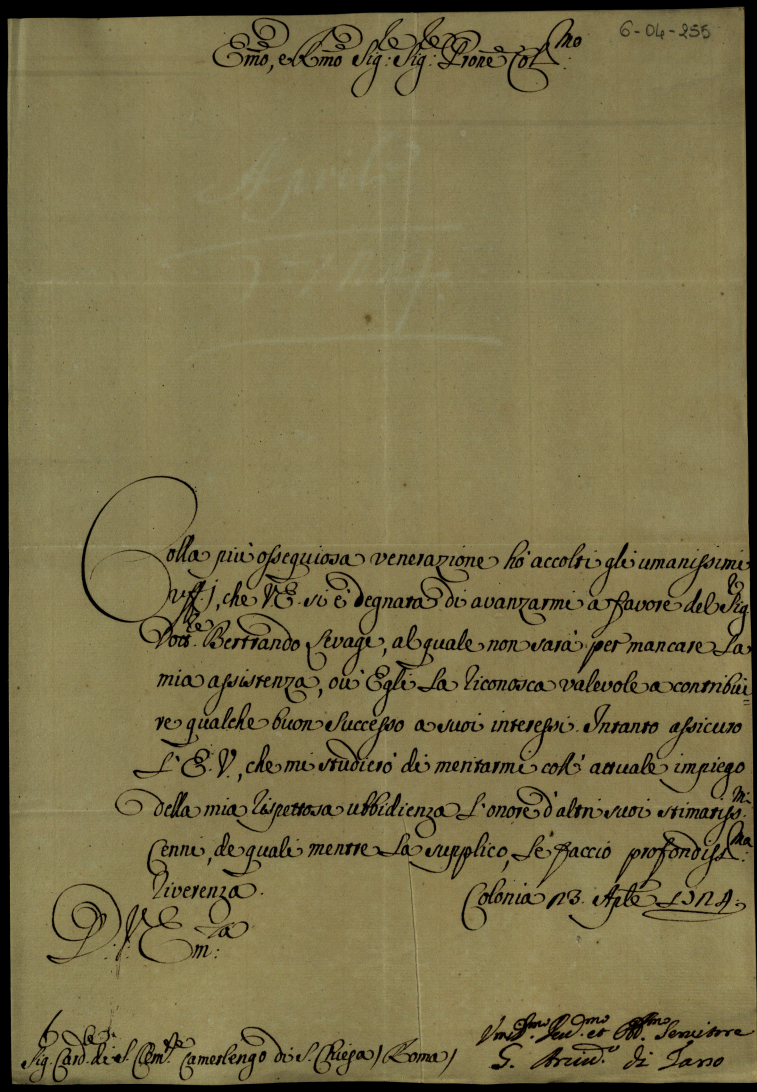 6-04-255
Emo, e Rmo Sig:re Sig:re Prone Col:mo
Aprile
Colla più ossequiosa venerazione hò accolti gli umanissimi
uffij, che VE. si è degnata di avanzarmi a favore del Sig:r
Dott:re Bertrando Sevage, al quale non sarà per mancare la
mia assistenza, ov' Egli la riconosca valevole a contribui=
re qualche buon successo a suoi interessi. Intanto assicuro
L' E. V., che mi studierò di meritarmi coll' attuale impiego
della mia rispettosa ubbidienza l'onore d'altri suoi stimatiss:mi
Cenni, de quali mentre La supplico, Le faccio profondiss:ma
riverenza.
Colonia 23. Aple 1724.
D. V. Em:za
Sig. Card:le di S. Clem:te Camerlengo di S. Chiesa / Roma /
Um:mo Dev:mo et Obb:mo Servitore
G. Arciv:o di Tarso